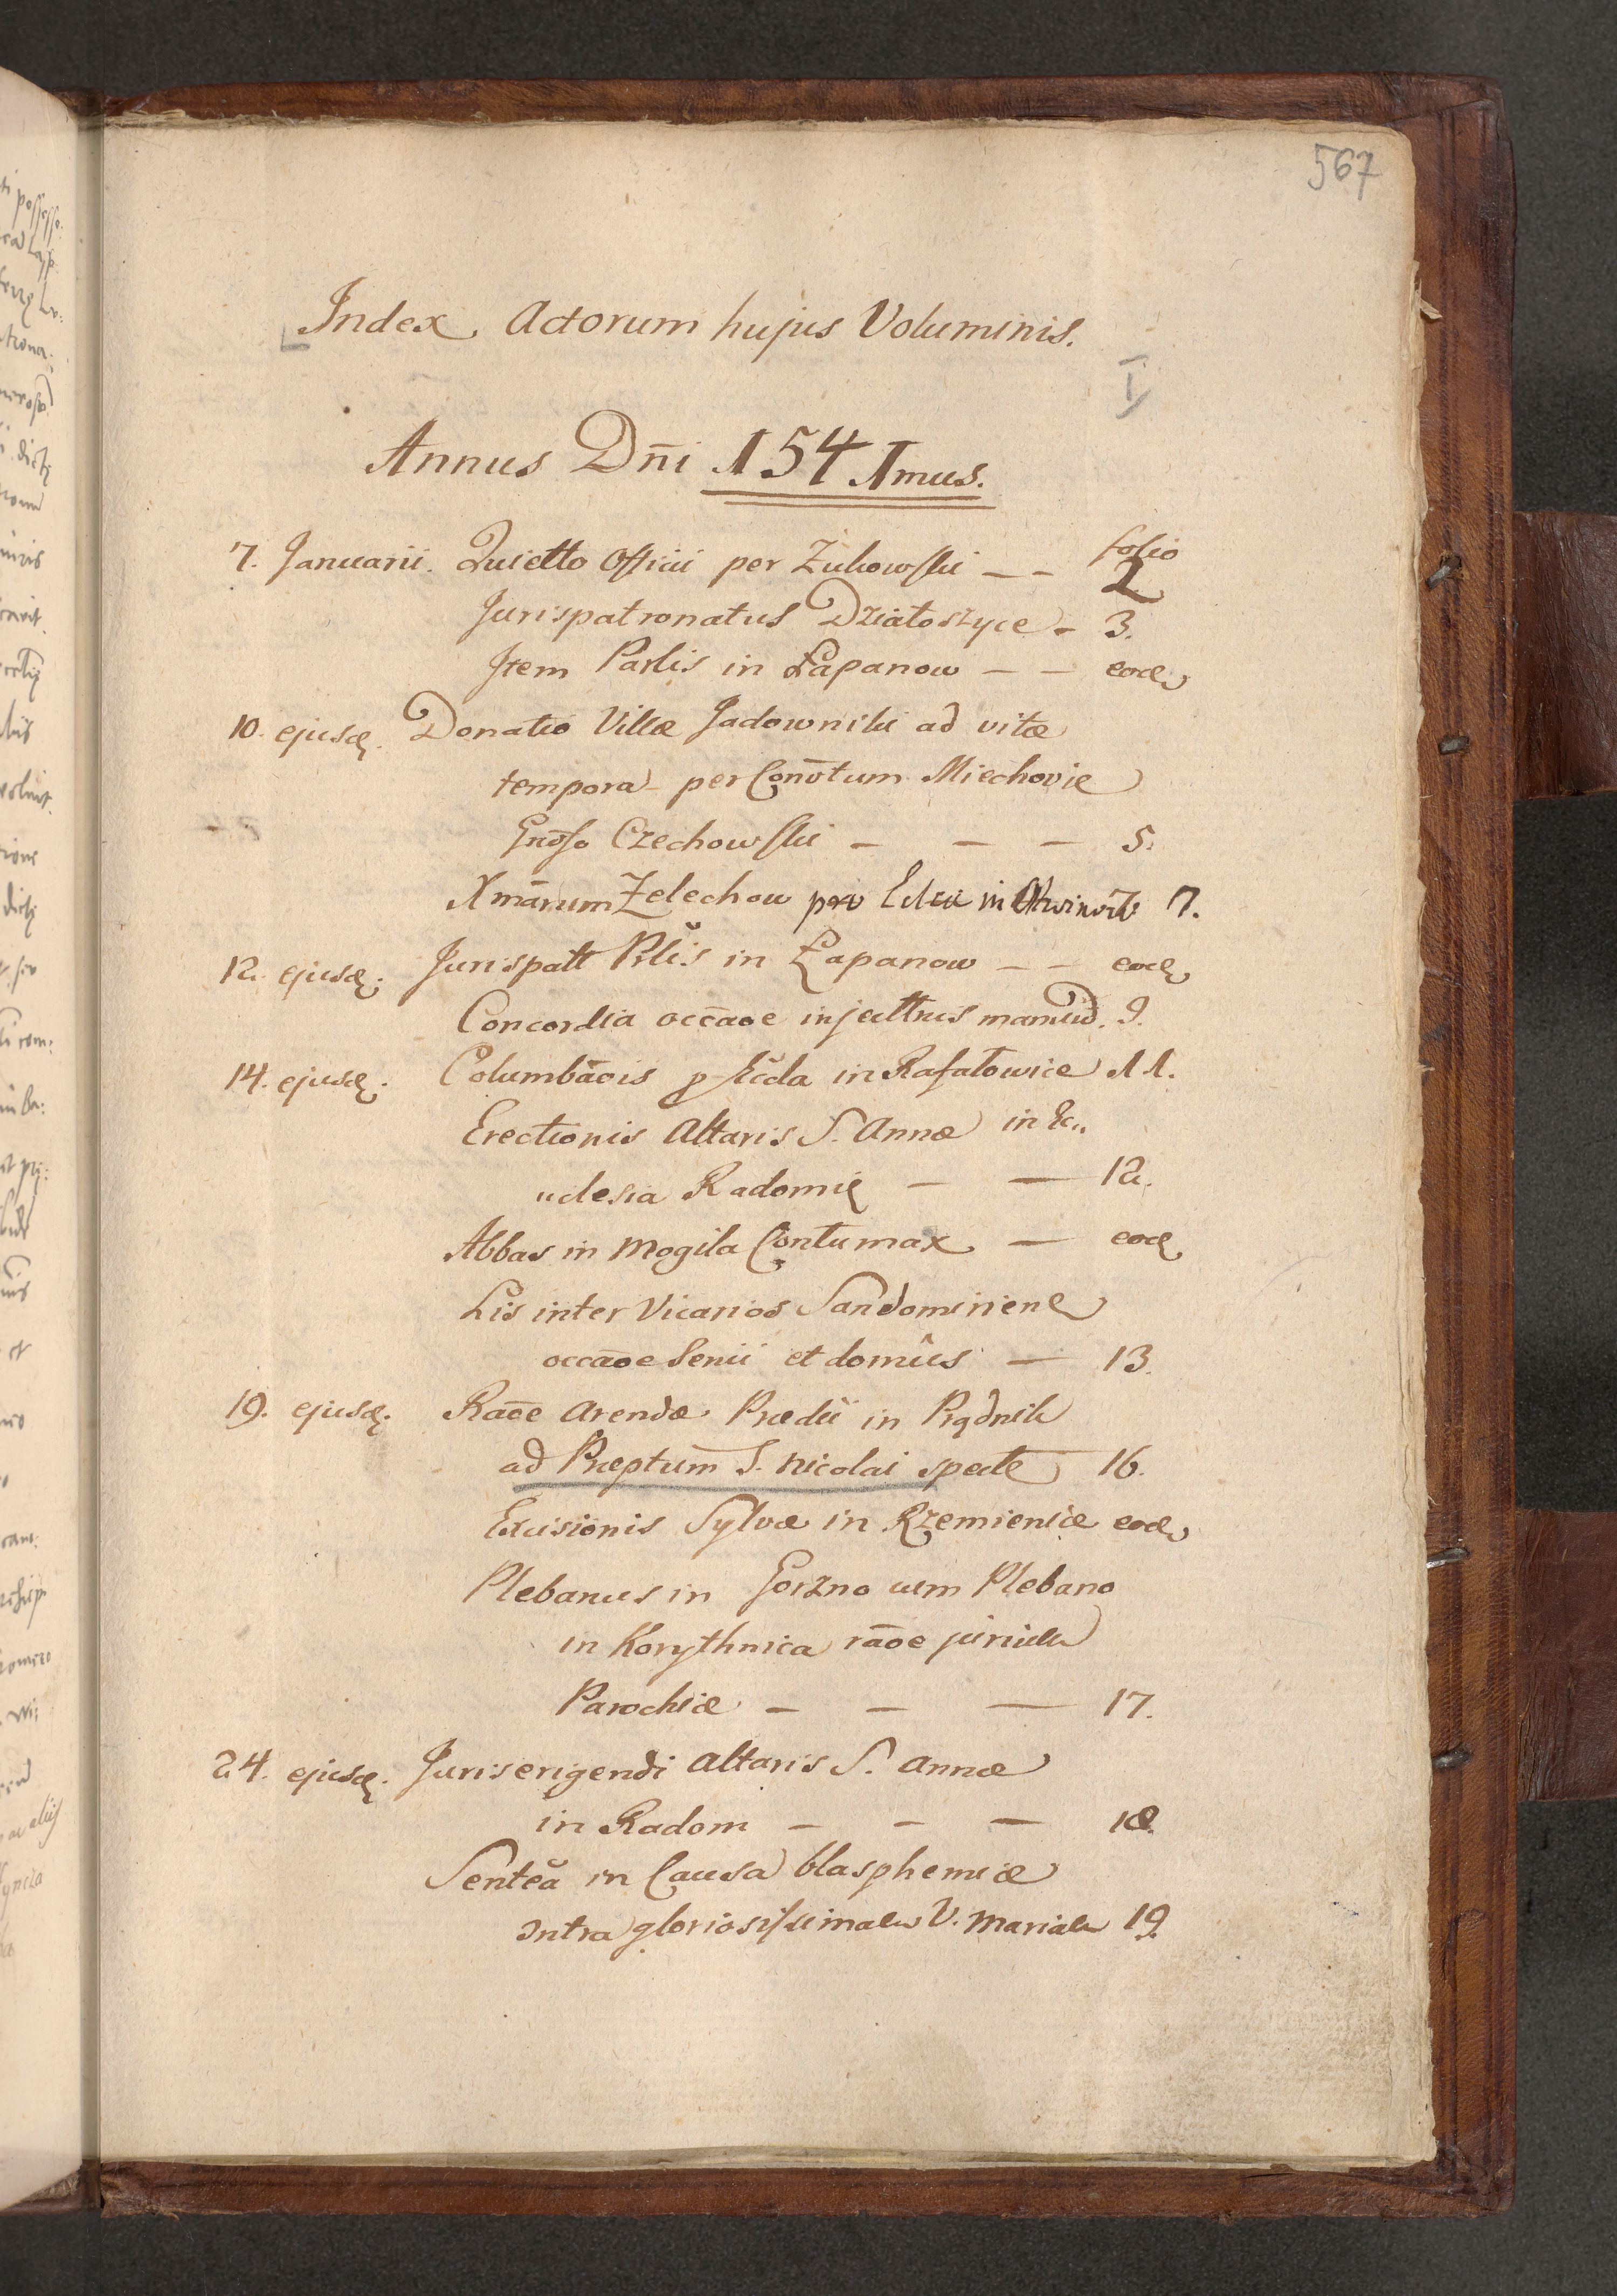 567
Index Actorum hujus Voluminis.
I
Annus Dn̄i 1541mus.
folio
7. Januarii. Quietto Officii per Żukowski – – 2
Jurispatronatus Działoszyce – 3.
Item Parlis in Łapanow – – eode
10. ejusde. Donatio Villæ Jadowniki ad vitæ
tempora per Conv̄tum Miechovie
Gnōso Czechowski – – – 5.
Xmārum Żelechow pro Eclia in 7.
12. ejusde. Jurispatt Plis in Łapanow – – eode
Concordia occāoe injecttnis manuū. 9.
14. ejusde. Columbāois p Ecda in Rafałowice 11.
Erectionis Altaris S. Annæ in Ec„
„clesia Radomię – – 12.
Abbas in Mogiła Contumax – eode
Lis inter Vicarios Sandomirien
occāoe Senii et domûs – 13.
19. ejusde. Raōe Arendæ Prædii in Prądnik
ad Præptum S. Nicolai specte 16.
Excisionis Sylvæ in Rzemienice eode
Plebanus in Gorzno cum Plebano
in Korythnica rāoe jurium
Parochiæ – – – 17.
24. ejusde. Juriserigendi Altaris S. Annæ
in Radom – – – 18.
Sentēa in Causa blasphemiæ
intra gloriosissimam V. Mariam 19.